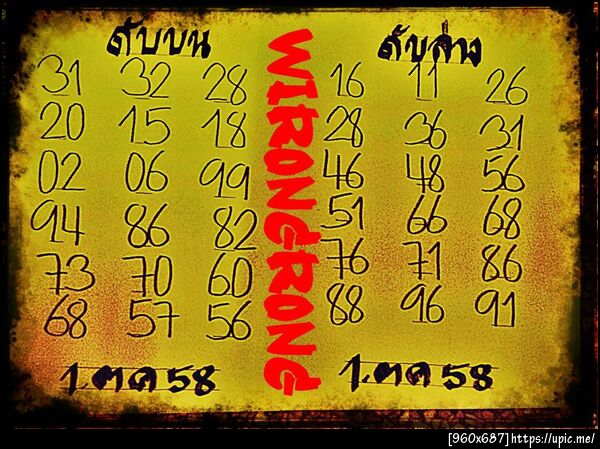 สับบน
31 32 28
20 15 18
02 06 99
94 86 82
73 70 60
68 57 56
1.ตค 58
WIRONGRONG
สับล่าง
16 11 26
28 36 31
46 48 56
51 66 68
76 71 86
88 96 91
1.ตค 58
[960x687]https://upic.me/